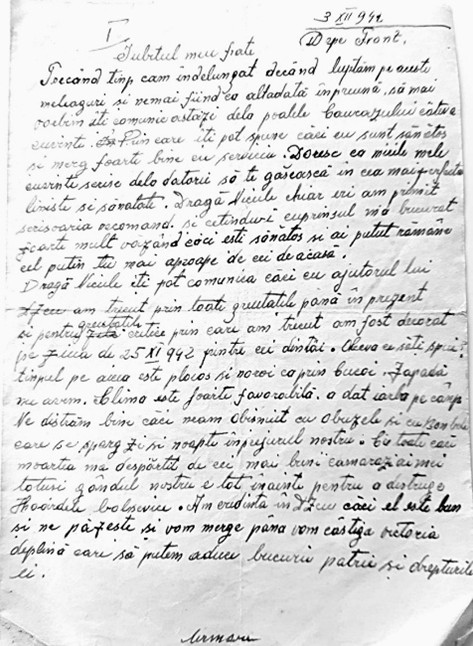 3 XII 942
I
Dpe Front,
Iubitul meu frate
Trecând timp cam îndelungat decând luptăm pe aceste
meleaguri si nemai fiind ca altadată împreună, să mai
vorbim iti comunic astăzi dela poalele Caucazului câteva
cuvinte. Prin care iti pot spune căci eu sunt sănătos
si merg foarte bine cu serviciu. Doresc ca micile mele
cuvinte scrise dela datorii să te găsească in cea mai perfecta
liniste si sănatate. Dragă Nicule chiar eri am primit
scrisoaria recomand. si cetinduri cuprinsul mă bucurat
foarte mult văzând căci esti sănătos si ai putut rămâne
cel putin tu mai aproape de cei de acasă.
Dragă Nicule iti pot comunica căci cu ajutorul lui
Dzeu am trecut prin toate greutatile până în prezent
si pentru greutatile critice prin care am trecut am fost decorat
pe ziua de 25 XI 942 printre cei dintăi. Ceva ce săti spui?
timpul pe aicea este ploios si noroi ca prin Zapadă
nu avem. Clima este foarte favorabilă, a dat iarba pe câmp
Ne distrăm bine căci neam obisnuit cu obuzele si cu bombele
care se sparg zi si noapte inprejurul nostru. Cu toate căci
moartia ma despărtit de cei mai buni camarazi ai mei
totusi gândul nostru e tot inainte pentru a distruge
Hoardele bolsevice. Am credinta în Dzeu căci el este bun
si ne păzeste si vom merge păna vom câstiga victoria
deplină care să putem aduce bucurii patrii și drepturile
ei.
Urmare